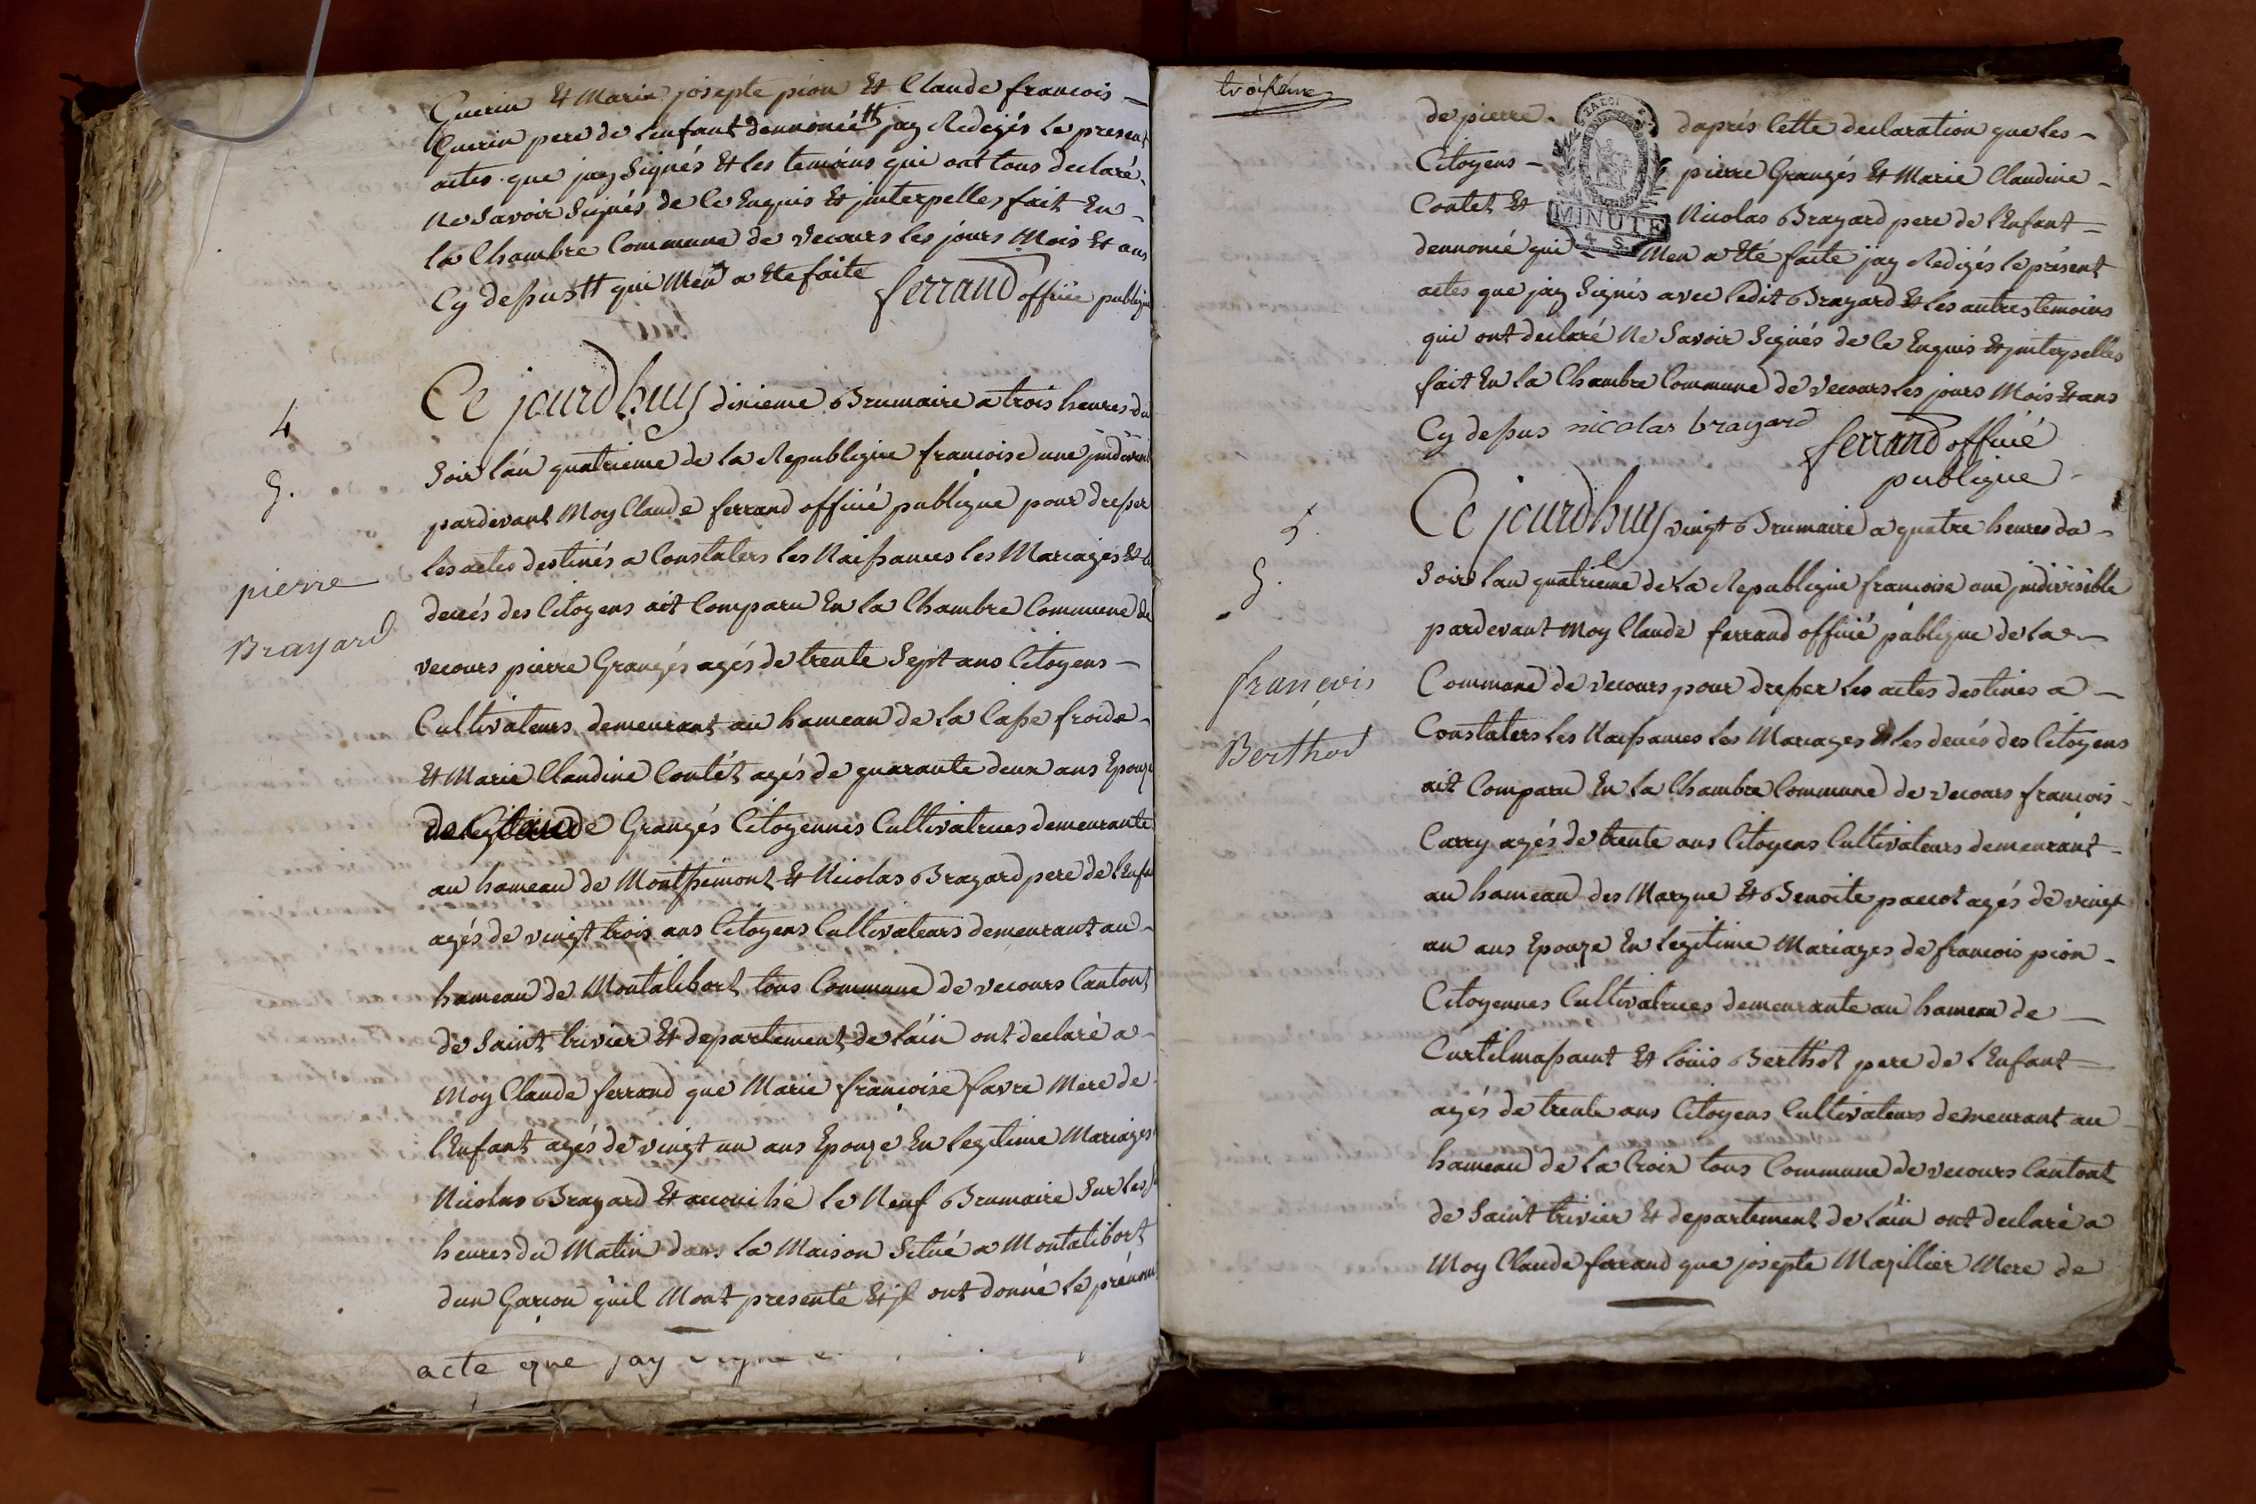 Guerin Et Marie josepte pion Et Claude francois
Guerin pere de lenfant dennoncé # jay Redegés le present
actes que jay Signés Et les temoins qui ont tous declaré
Ne Savoir Signés de ce Enquis Et jnterpelles fait En
la Chambre Commune de Vecours les jours Mois Et ans
Cy dessus # qui Men a Ete faite
ferrand officie publique
4
g.
pierre
Brayard
Ce jourdhuy dixieme Brumaire a trois heures du
Soir lan quatrieme de la Republique francoise une
pardevant Moy Claude ferrand officié publique pour dresser
les actes destinés a Constaters les Naissances les Mariages Et
decés des Citoyens ait Comparu En la Chambre Commune de
vecours pierre Grangés agés de trente Sept ans Citoyens
Cultivateurs demeurant au hameau de la Casse froide
Et Marie Claudine Contet agés de quarante deux ans Epouze
Grangés Citoyennes Cultivatrices demeurante
au hameau de Montsimont Et Nicolas Brayard pere de l'Enfa
agés de vingt trois ans Citoyens Cultivateurs demeurant au
hameau de Montalibort tous Commune de vecours Cantont
de Saint trivier Et departement de láin ont declaré a
Moy Claude ferrand que Marie francoise favre Mere de
l'Enfant agés de vingt un ans Epouzé En legitime Mariages
Nicolas Brayard Et accouché le Neuf Brumaire Sur les
heures du Matin dans la Maison Situé a Montalibort
dun Garcon quil Mont presenté Et jl ont donné le prénom
acte que jay
troisieme
de pierre. daprés Cette declaration que les
Citoyens pierre Grangés Et Marie Claudine
Contet Et Nicolas Brayard pere de l'Enfant
dennoncé qui Men a Eté faite jay Redigés le présent
MINUTE
4 S.
actes que jay Signés avec ledit Brayard Et les autres temoins
qui ont declaré Ne Savoir Signés de ce Enquis Et jnterpellés
fait En la Chambre Commune de vecours les jours Mois Et ans
Cy dessus nicolas brayard
ferrand officié
publique
5.
g.
françois
Berthod
Ce jourdhuy vingt Brumaire a quatre heures du
Soir lan quatrieme de la Republique francoise une jndivisible
pardevant Moy Claude ferrand officié publique de la
Commune de vecours pour dresser les actes destinés a
Constaters les Naissances les Mariages Et les decés des Citoyens
ait Comparu En la Chambre Commune de vecours francois
Carry agés de trente ans Citoyens Cultivateurs demeurant
au hameau des Marque Et Benoite paccot agés de vingt
un ans Epouze En legitime Mariages de francois pion
Citoyennes Cultivatrices demeurante au hameau de
Curtilmassaint Et loüis Berthot pere de l'Enfant
agés de trente ans Citoyens Cultivateurs demeurant au
hameau de la Croix tous Commune de vecours Cantont
de Saint trivier Et departement de láin ont declaré a
Moy Claude ferrand que josepte Mazillier Mere de